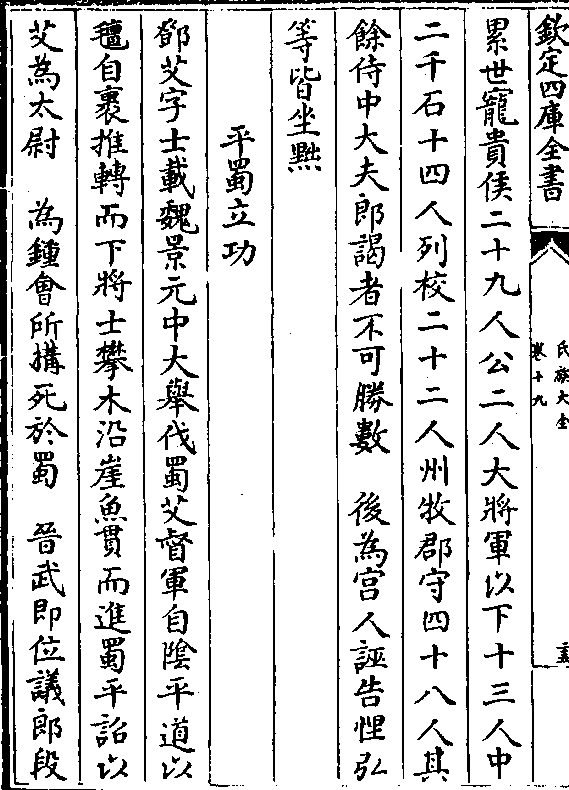 欽定四庫全書
氏族大全
卷十九
累世寵貴侯二十九人公二人大將軍以下十三人中
二千石十四人列校二十二人州牧郡守四十八人其
餘侍中大夫郎謁者不可勝數　後為宫人誣告悝弘
等皆坐黜
平蜀立功
鄧艾字士載魏景元中大舉伐蜀艾督軍自陰平道以
氊自裹推轉而下將士攀木沿崖魚貫而進蜀平詔以
艾為太尉　為鍾會所搆死於蜀　晉武即位議郎段